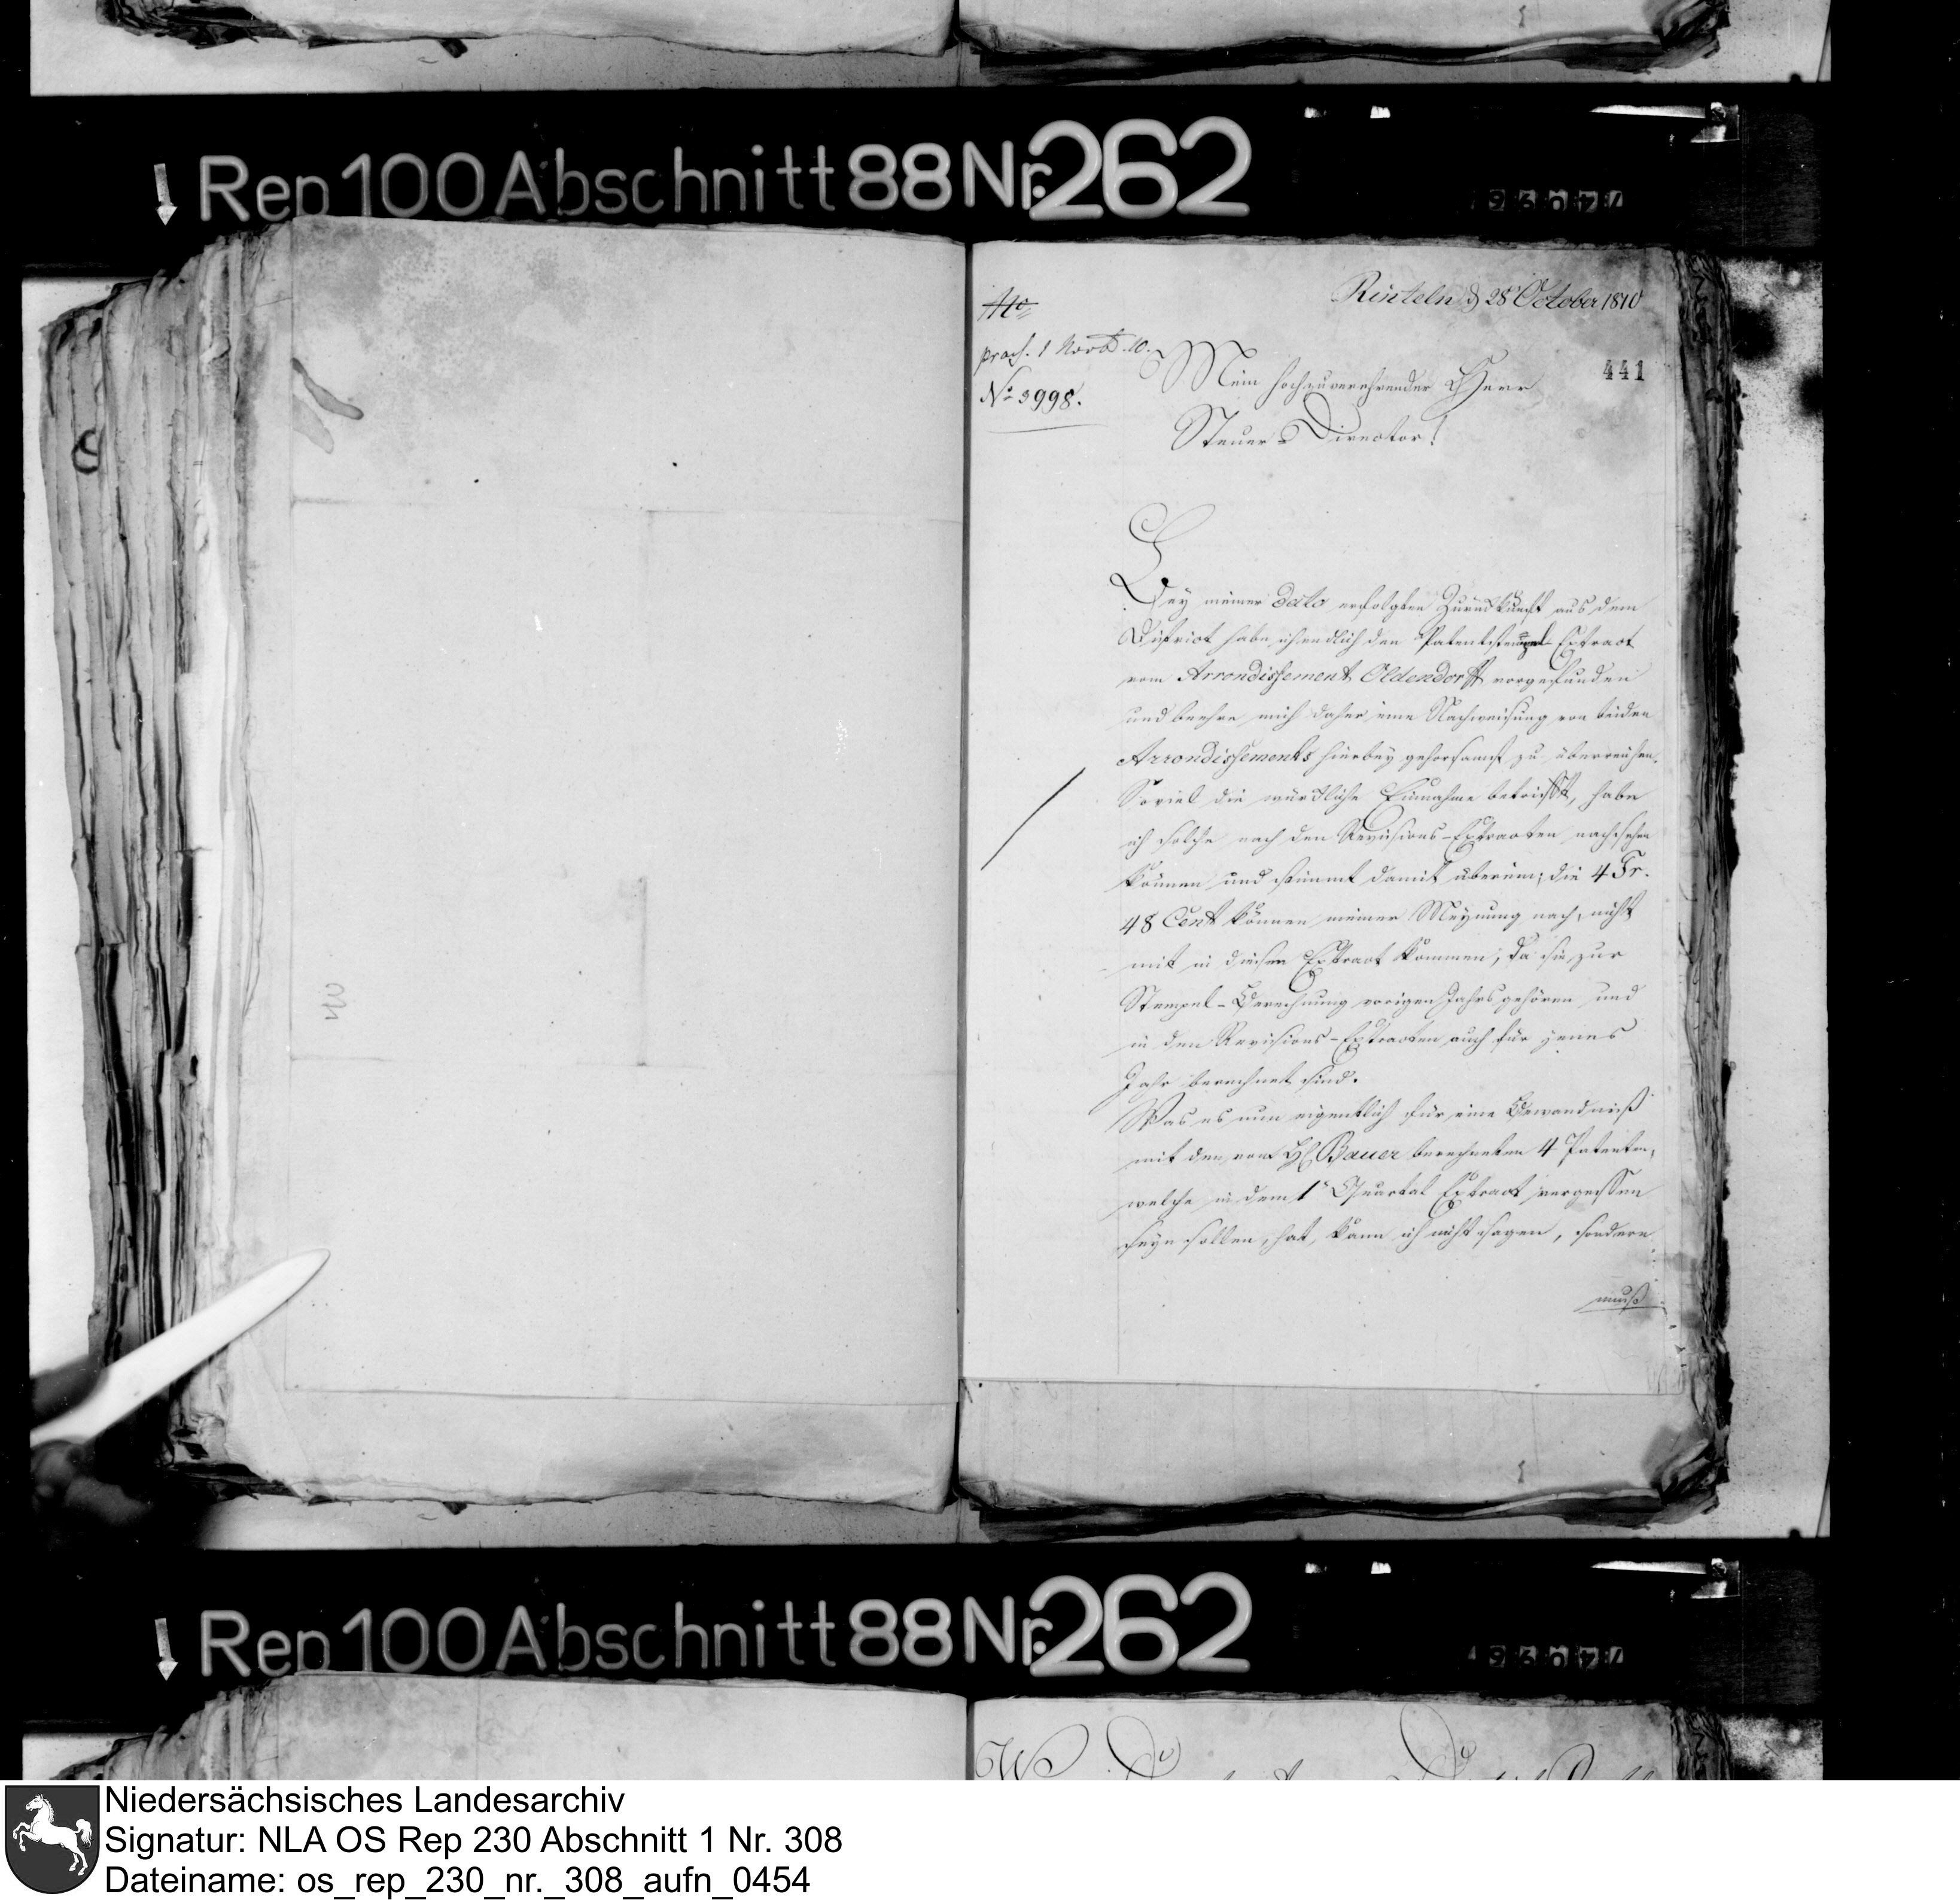 Rep 100 Abschnitt 88 Nr. 262
Rinteln d 28 October 1810
praes. 1 Novb. 10.
No 3998.
441
Mein hochzuverehrender Herr
Steuer-Director!
Bey meiner dato erfolgten Zurückkunft aus dem
District habe ich endlich den Patentstempel Extract
vom Arrondissement Oldendorff vorgefunden
und beehre mich daher eine Nachweisung von beiden
Arrondissements hierbey gehorsamst zu überreichen.
Soviel die würkliche Einnahme betrifft, habe
ich solche nach den Revisions-Extracten nachsehen
können und stimmt damit überein; die 4 Fr.
48 Cent können meiner Meynung nach, nicht
mit in diesen Extract kommen, da sie zur
Stempel-Berechnung vorigen Jahrs gehören und
in den Revisions-Extracten auch für jenes
Jahr berechnet sind.
Was es nun eigentlich für eine Bewandniß
mit den vom H Bauer berechneten 4 Patenten,
welche in dem 1 Quartal Extract vergessen
seyn sollen, hat, kann ich nicht sagen, sondern
muß
Rep 100 Abschnitt 88 Nr. 262
Niedersächsisches Landesarchiv
Signatur: NLA OS Rep 230 Abschnitt 1 Nr. 308
Dateiname: os_rep_230_nr._308_aufn_0454